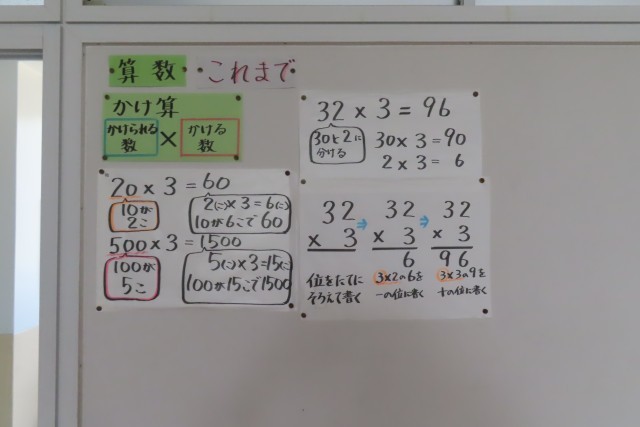 算数 これまで
かけ算
かけられる数 × かける数
20 × 3 = 60
10が2こ
2(こ)×3=6(こ)
10が6こで60
500 × 3 = 1,500
100が5こ
5(こ)×3=15(こ)
100が15こで1500
32 × 3 = 96
30と2に
分ける
30 × 3 = 90
2 × 3 = 6
32
× 3
位をたてに
そろえて書く
⇒
32
× 3
6
3×2の6を
一の位に書く
⇒
32
× 3
96
3×3の9を
十の位に書く